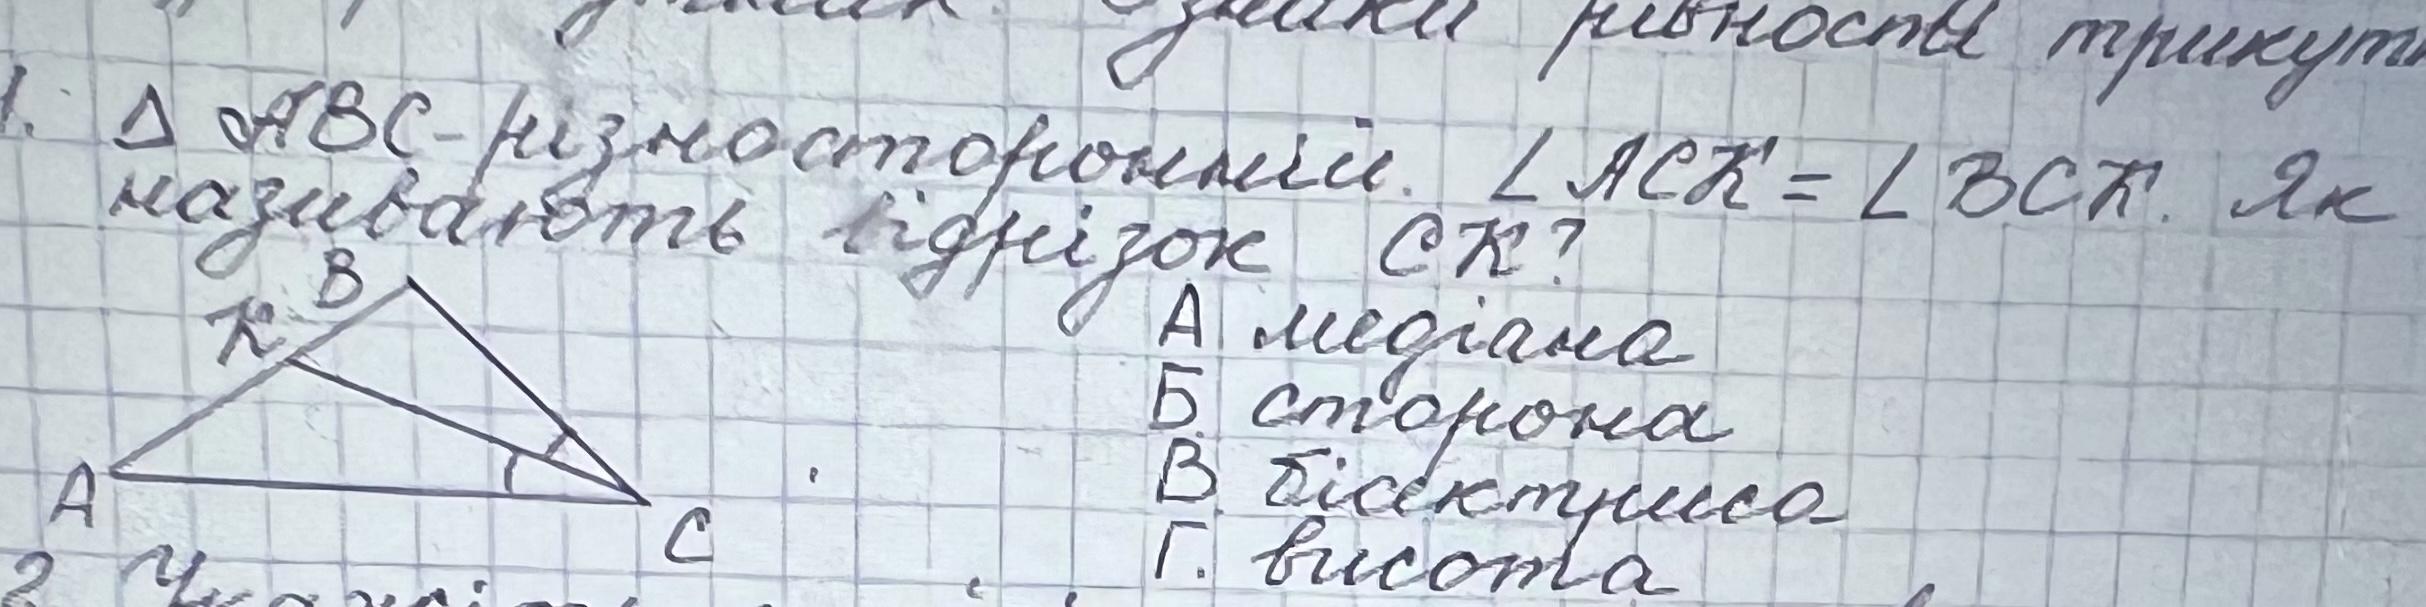 ознаки рівності трикутн
1. Δ ABC - різносторонній. ∠ ACK = ∠ BCK. Як
називають відрізок CK?
B
K
A
C
А медіана
Б. сторона
В. бісектриса
Г. висота
2. Укажіть